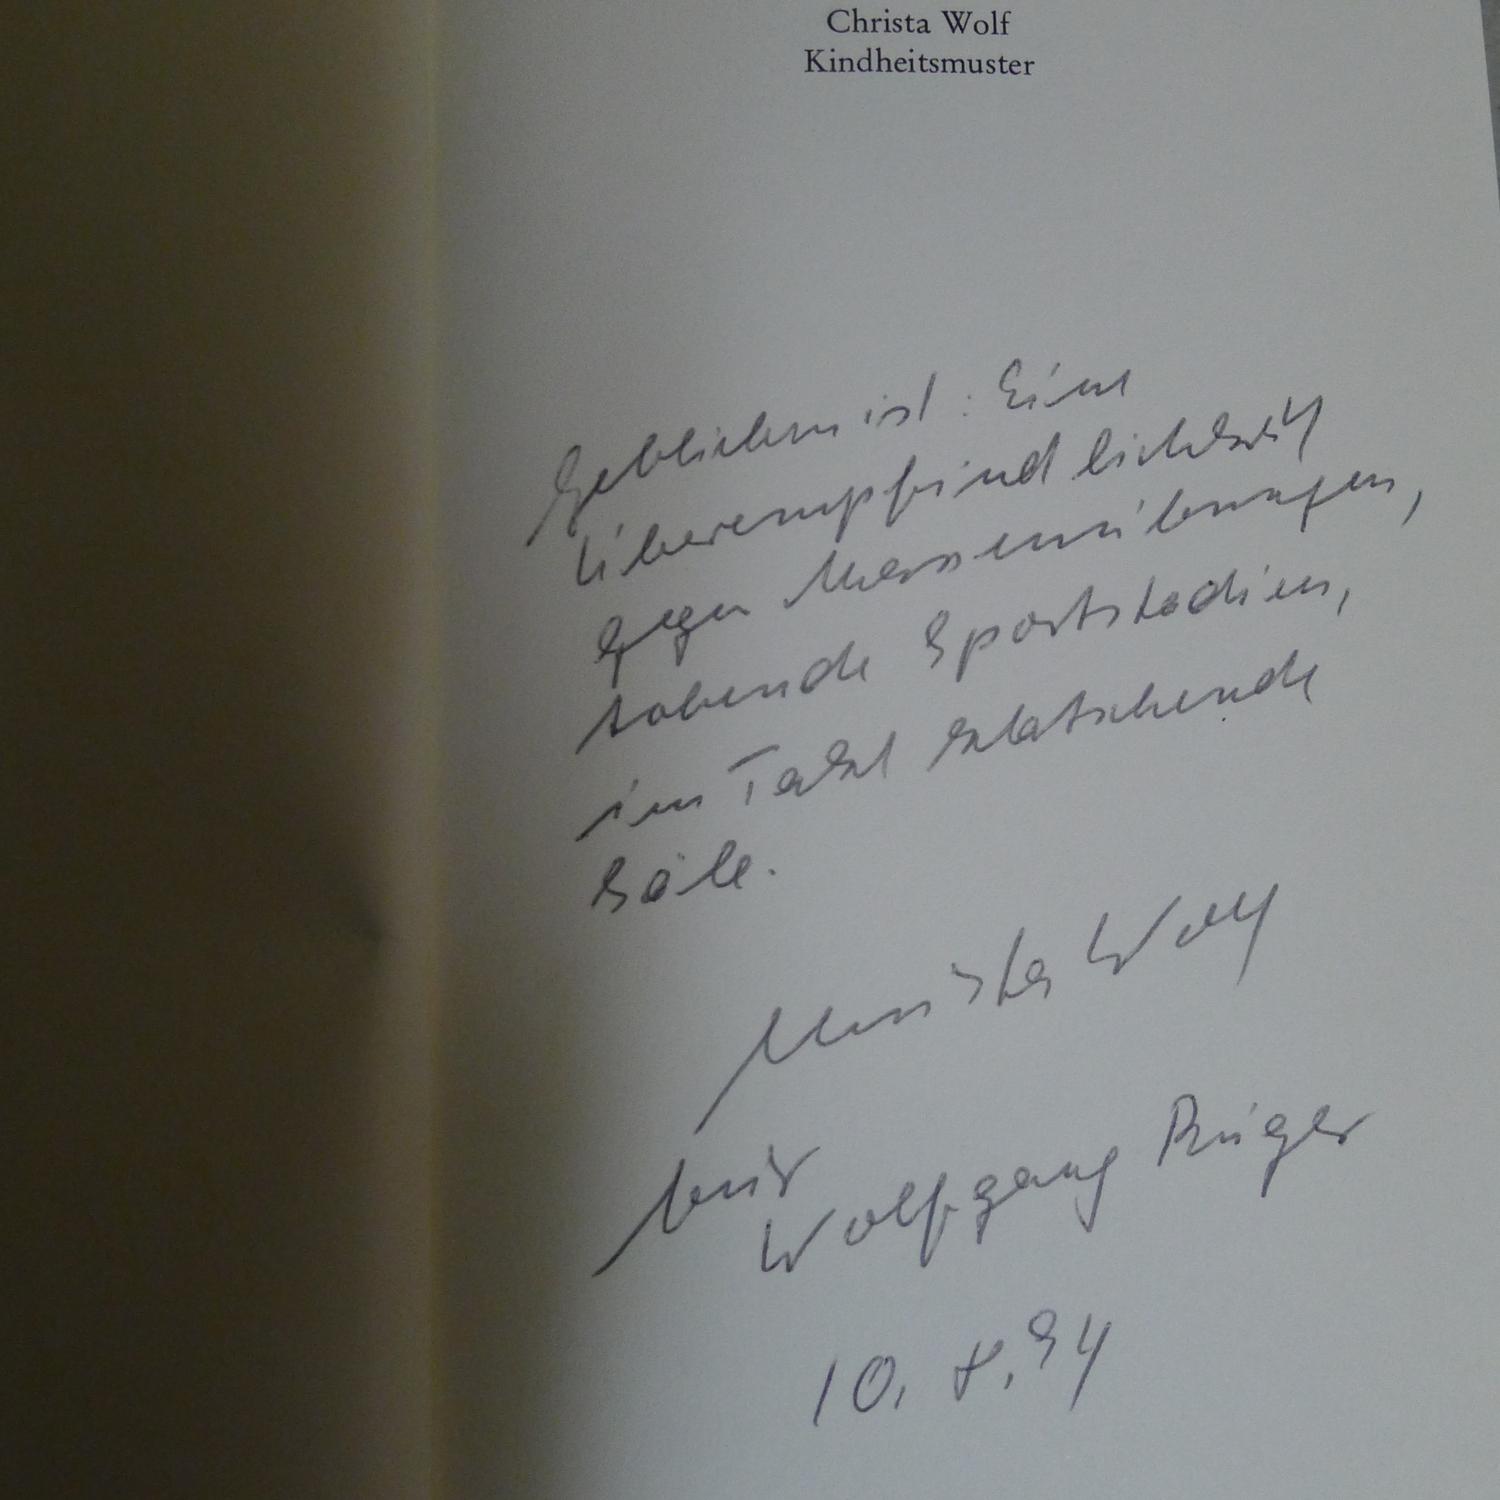 Christa Wolf
Kindheitsmuster
Geblieben ist: Eine
Überempfindlichkeit
gegen Massenübungen,
tobende Sportstadien,
im Takt klatschende
Säle.
Christa Wolf
für
Wolfgang Rüger
10. 8. 94